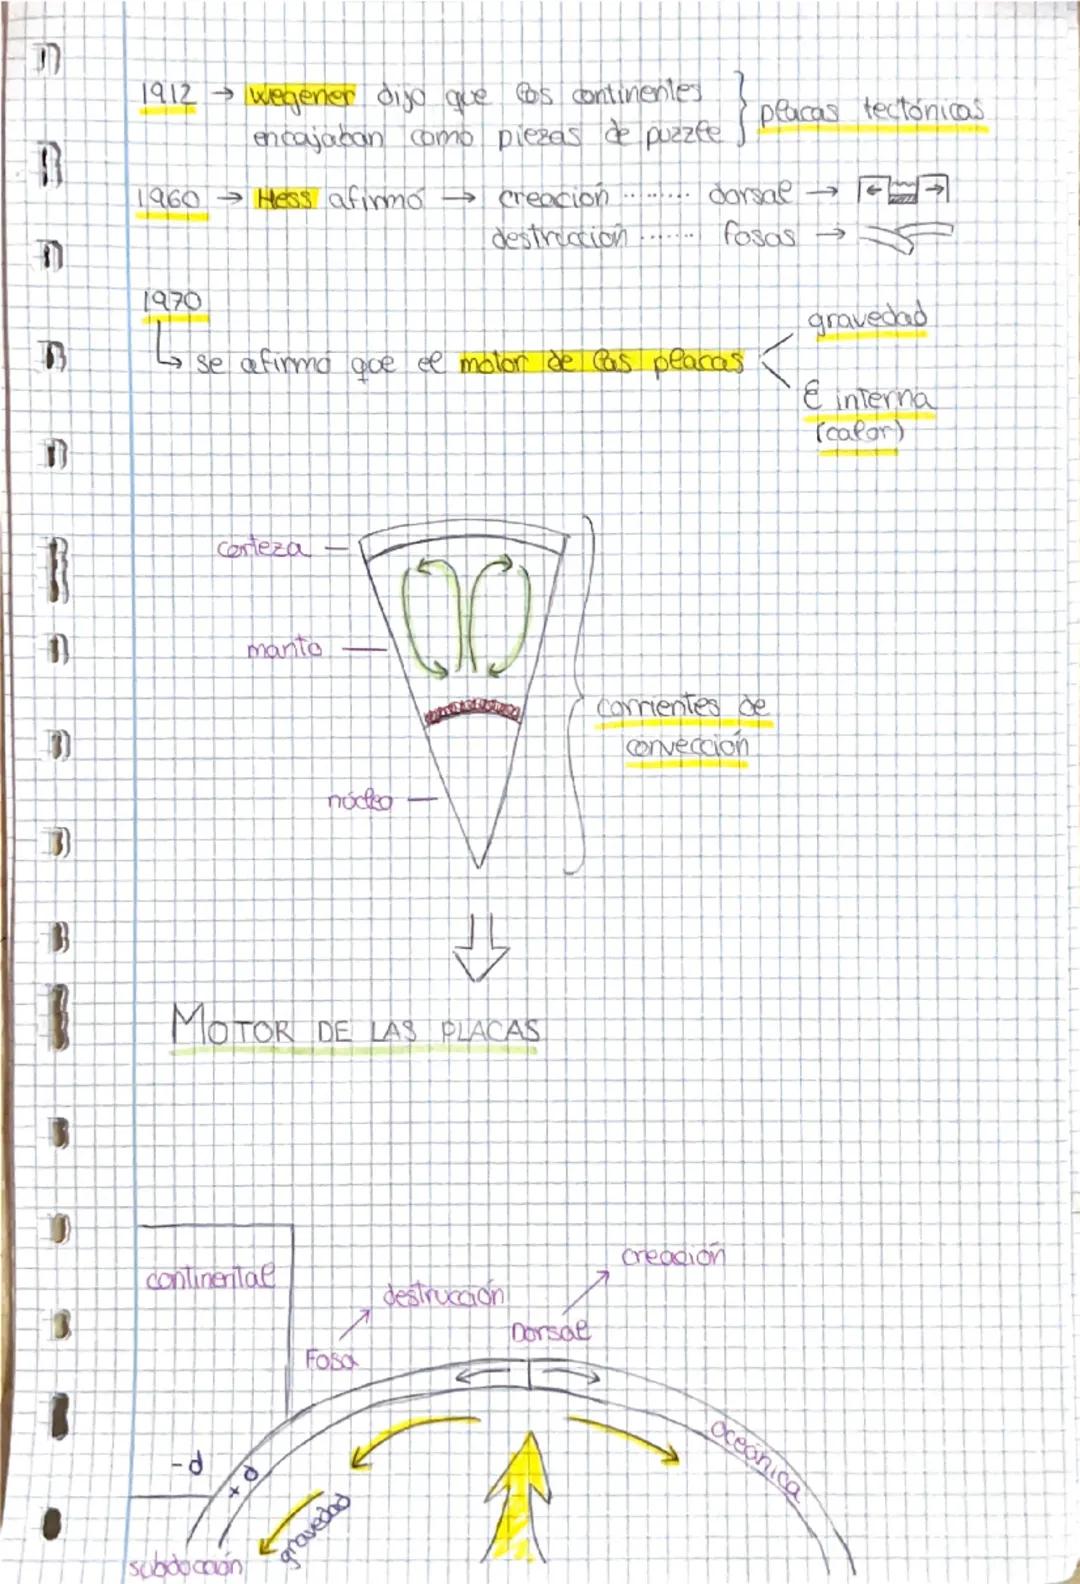 1912 → Wegener dijo que los continentes
encajaban como piezas de puzzle } placas tectónicas
1960 → Hess afirmó → creación ......... dorsal →
destrucción ....... fosas →
1970
↳ se afirmo que el motor de las placas
gravedad
E interna
(calor)
corteza
manto
núcleo
corrientes de
convección
MOTOR DE LAS PLACAS
continental
creación
destrucción
Dorsal
Fosa
oceánica
-d
+d
gravedad
subducción